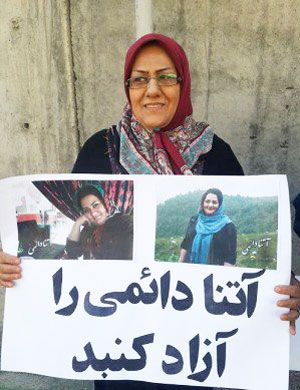 آتنا دائمی
آتنا دائمی
آتنا دائمی را
آزاد کنید